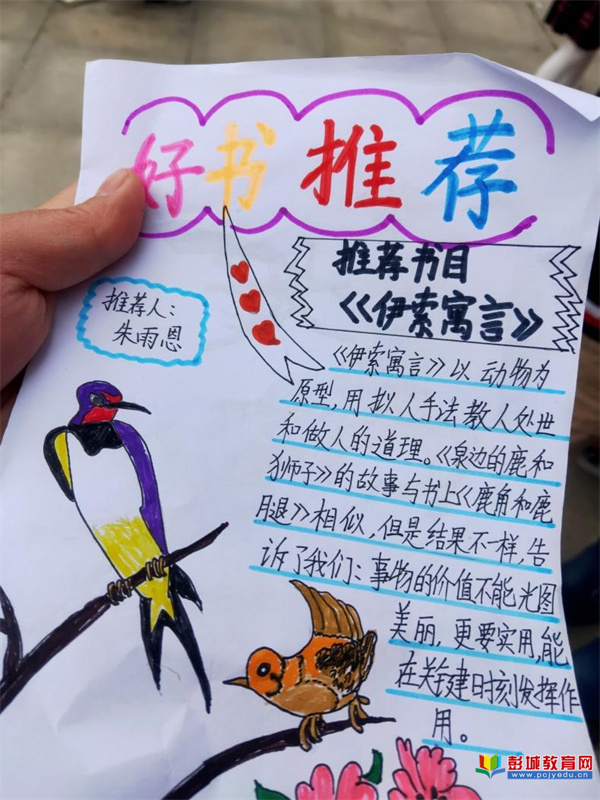 好书推荐
推荐书目
《伊索寓言》
推荐人：
朱雨恩
《伊索寓言》以动物为
原型,用拟人手法教人处世
和做人的道理。《泉边的鹿和
狮子》的故事与书上《鹿角和鹿
腿》相似,但是结果不一样,告
诉了我们：事物的价值不能光图
美丽,更要实用,能
在关键时刻发挥作
用。
彭城教育网
www.pcjyedu.cn